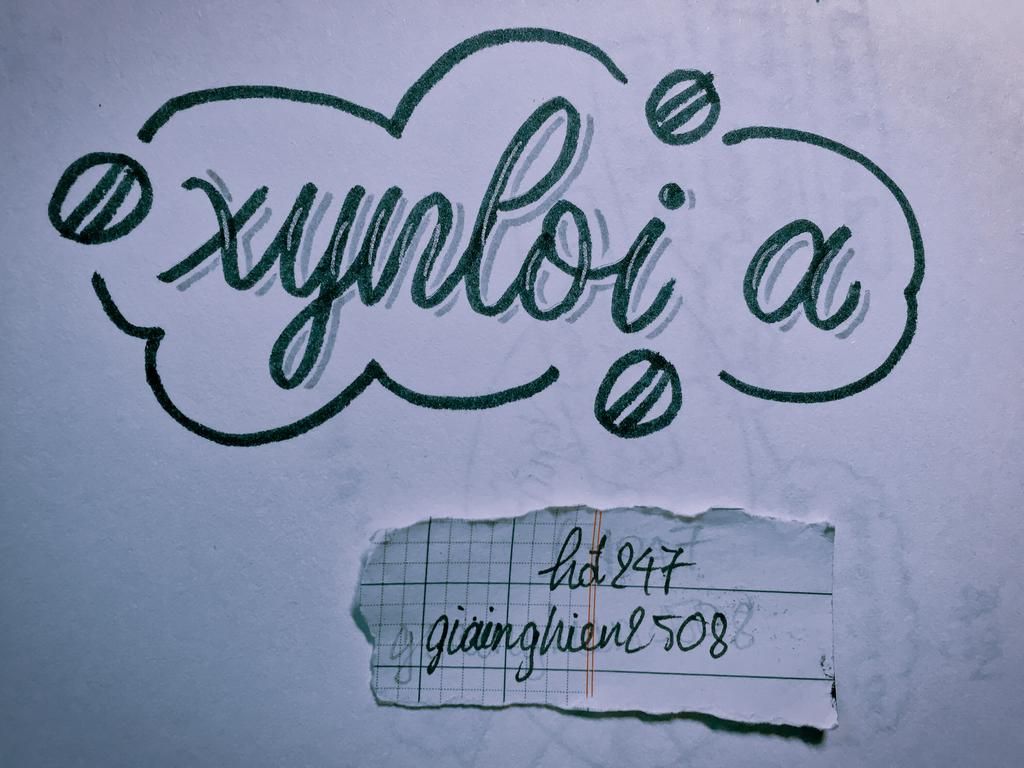 xynloi a
hđ 247
giainghien2508